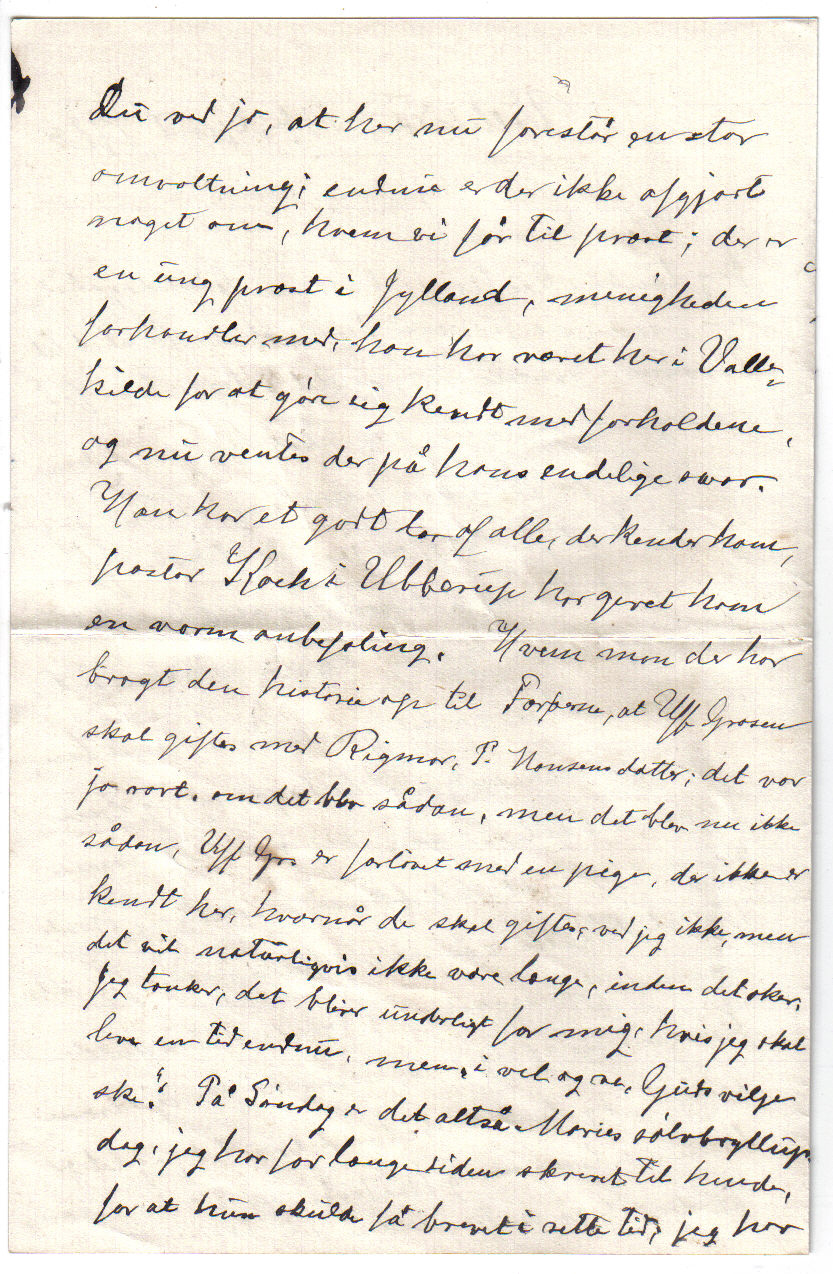 Du ved jo, at her nu forestår en stor
omvæltning; endnu er der ikke afgjort
noget om, hvem vi får til præst; der er
en ung præst i Jylland, menigheden
forhandler med, han har været her i Valle-
kilde for at göre sig kendt med forholdene,
og nu ventes der på hans endelige svar.
Han har et godt lov af alle, der kender ham,
pastor Koch i Ubberup har gevet ham
en varm anbefaling. Hvem mon der har
bragt den historie op til Færøerne, at Uff Grosen
skal giftes med Rigmor, P. Hansens datter; det var
jo rart, om det blev sådan, men det blev nu ikke
sådan, Uff Gro. er forlovet med en pige, der ikke er
kendt her, hvornår de skal giftes, ved jeg ikke, men
det vil naturligvis ikke være længe, inden det sker.
Jeg tænker, det bliver underligt for mig, hvis jeg skal
leve en tid endnu, men, i vel og ve, Guds vilje
ske." På Söndag er det altså Maries sølvbryllups
dag, jeg har for længe siden skrevet til hende,
for at hun skulde få brevet i rette tid, jeg har